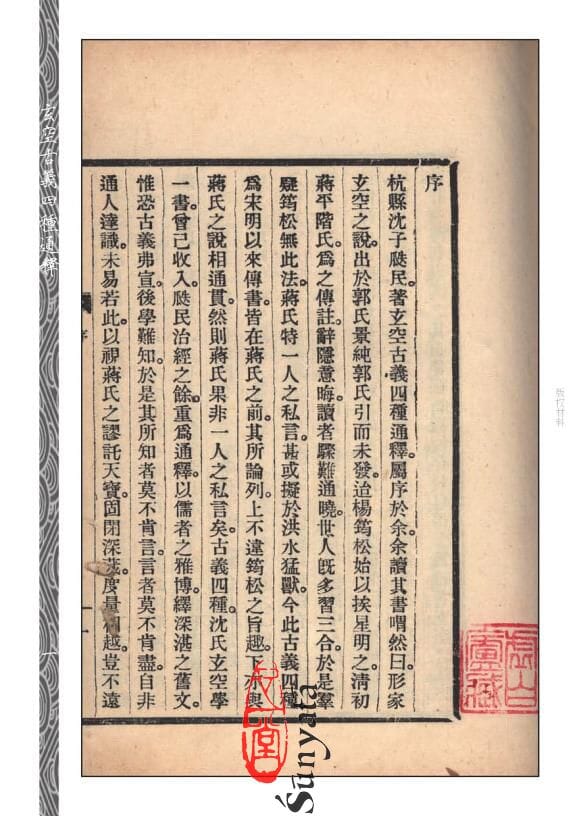 序
杭縣沈子瓞民。著玄空古義四種通釋。屬序於余。余讀其書。喟然曰。形家
玄空之說。出於郭氏景純。郭氏引而未發。迨楊筠松始以挨星明之。清初
蔣平階氏。為之傳註。辭隱意晦。讀者驟難通曉。世人既多習三合。於是羣
疑筠松無此法。蔣氏特一人之私言。甚或擬於洪水猛獸。今此古義四種
為宋明以來傳書。皆在蔣氏之前。其所論列。上不違筠松之旨趣。下亦與
蔣氏之說相通貫。然則蔣氏果非一人之私言矣。古義四種。沈氏玄空學
一書。曾已收入。瓞民治經之餘。重為通釋。以儒者之雅博。繹深湛之舊文。
惟恐古義弗宣。後學難知。於是其所知者。莫不肯言。言者莫不肯盡。自非
通人達識。未易若此。以視蔣氏之謬託天寶。固閉深藏。度量相越。豈不遠
序
玄空古義四種通釋
一
版权材料
虛白廬藏
Śūnyatā